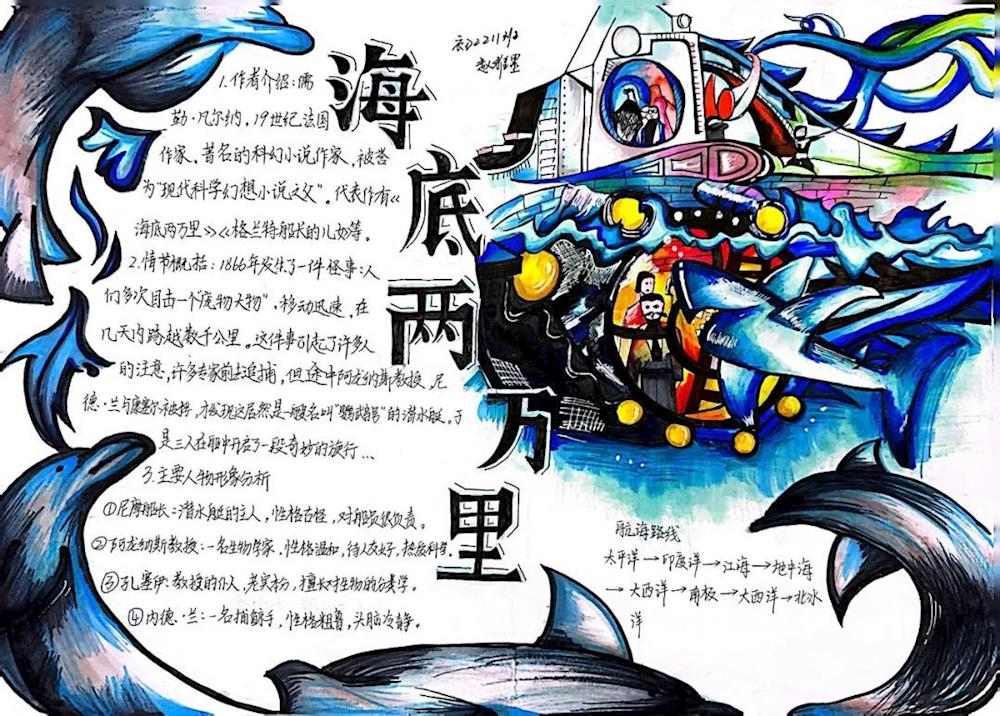 海底两万里
初2211班
1.作者介绍:儒
勒·凡尔纳，19世纪法国
作家。著名的科幻小说作家，被誉
为“现代科学幻想小说之父”。代表作有《
海底两万里》《格兰特船长的儿女等。
2.情节概括：1866年发生了一件怪事：人
们多次目击一个“庞物大物”，移动迅速，在
几天内跨越数千公里。这件事引起了许多人
的注意，许多专家前去追捕，但途中阿龙纳斯教授、尼
德·兰与康塞尔被捋，才发现这居然是一艘名叫“鹦鹉号”的潜水艇。于
是三人在船中开启了一段奇妙的旅行…
3.主要人物形象分析
①尼摩船长：潜水艇的主人，性格古怪，对船员很负责。
②阿龙纳斯教授：一名生物学家，性格温和，待人友好，热爱科学。
③孔塞伊:教授的仆人，老实本分，擅长对生物的分类学。
④内德·兰：一名捕鲸手，性格粗鲁，头脑冷静。
航海路线
太平洋→印度洋→江海→地中海
→大西洋→南极→大西洋→北冰
洋